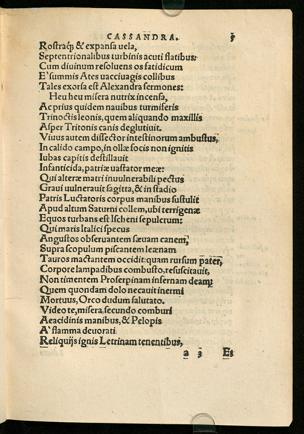 CASSANDRA. 3
Rostraq; & expansa uela,
Septentrionalibus turbinis acuti flatibus:
Cum diuinum resoluens os fatidicum
E' summis Ates uacciuagis collibus
Tales exorsa est Alexandra sermones:
Heu heu misera nutrix incensa,
Ac prius quidem nauibus turmiseris
Trinoctis leonis, quem aliquando maxillis
Asper Tritonis canis deglutiuit.
Viuus autem dissector intestinorum ambustus,
In calido campo, in ollæ focis non ignitis
Iubas capitis destillauit
Infanticida, patriæ uastator meæ:
Qui alteræ matri inuulnerabili pectus
Graui uulnerauit sagitta, & in stadio
Patris Luctatoris corpus manibus sustulit
Apud altum Saturni collem, ubi terrigenæ
Equos turbans est Ischeni sepulcrum:
Qui maris Italici specus
Angustos obseruantem sæuam canem,
Supra scopulum piscantem leænam
Tauros mactantem occidit: quam rursum pater,
Corpore lampadibus combusto, resuscitauit,
Non timentem Proserpinam infernam deamq;
Quem quondam dolo necauit inermi
Mortuus, Orco dudum salutato.
Video te, misera secundo comburi
Aeacidinis manibus, & Pelopis
A' flamma deuorati
Reliquijs ignis Letrinam tenentibus,
a 3 Et